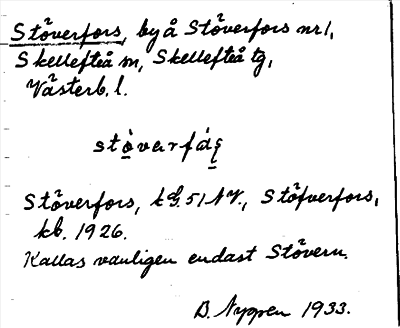 Stöverfors, by å Stöverfors nr 1,
Skellefteå sn, Skellefteå tg,
Västerb. l.
Stöverfors, k G. 51 NV., Stöfverfors,
kb. 1926.
Kallas vanligen endast Stövern.
B. Nygren 1933.